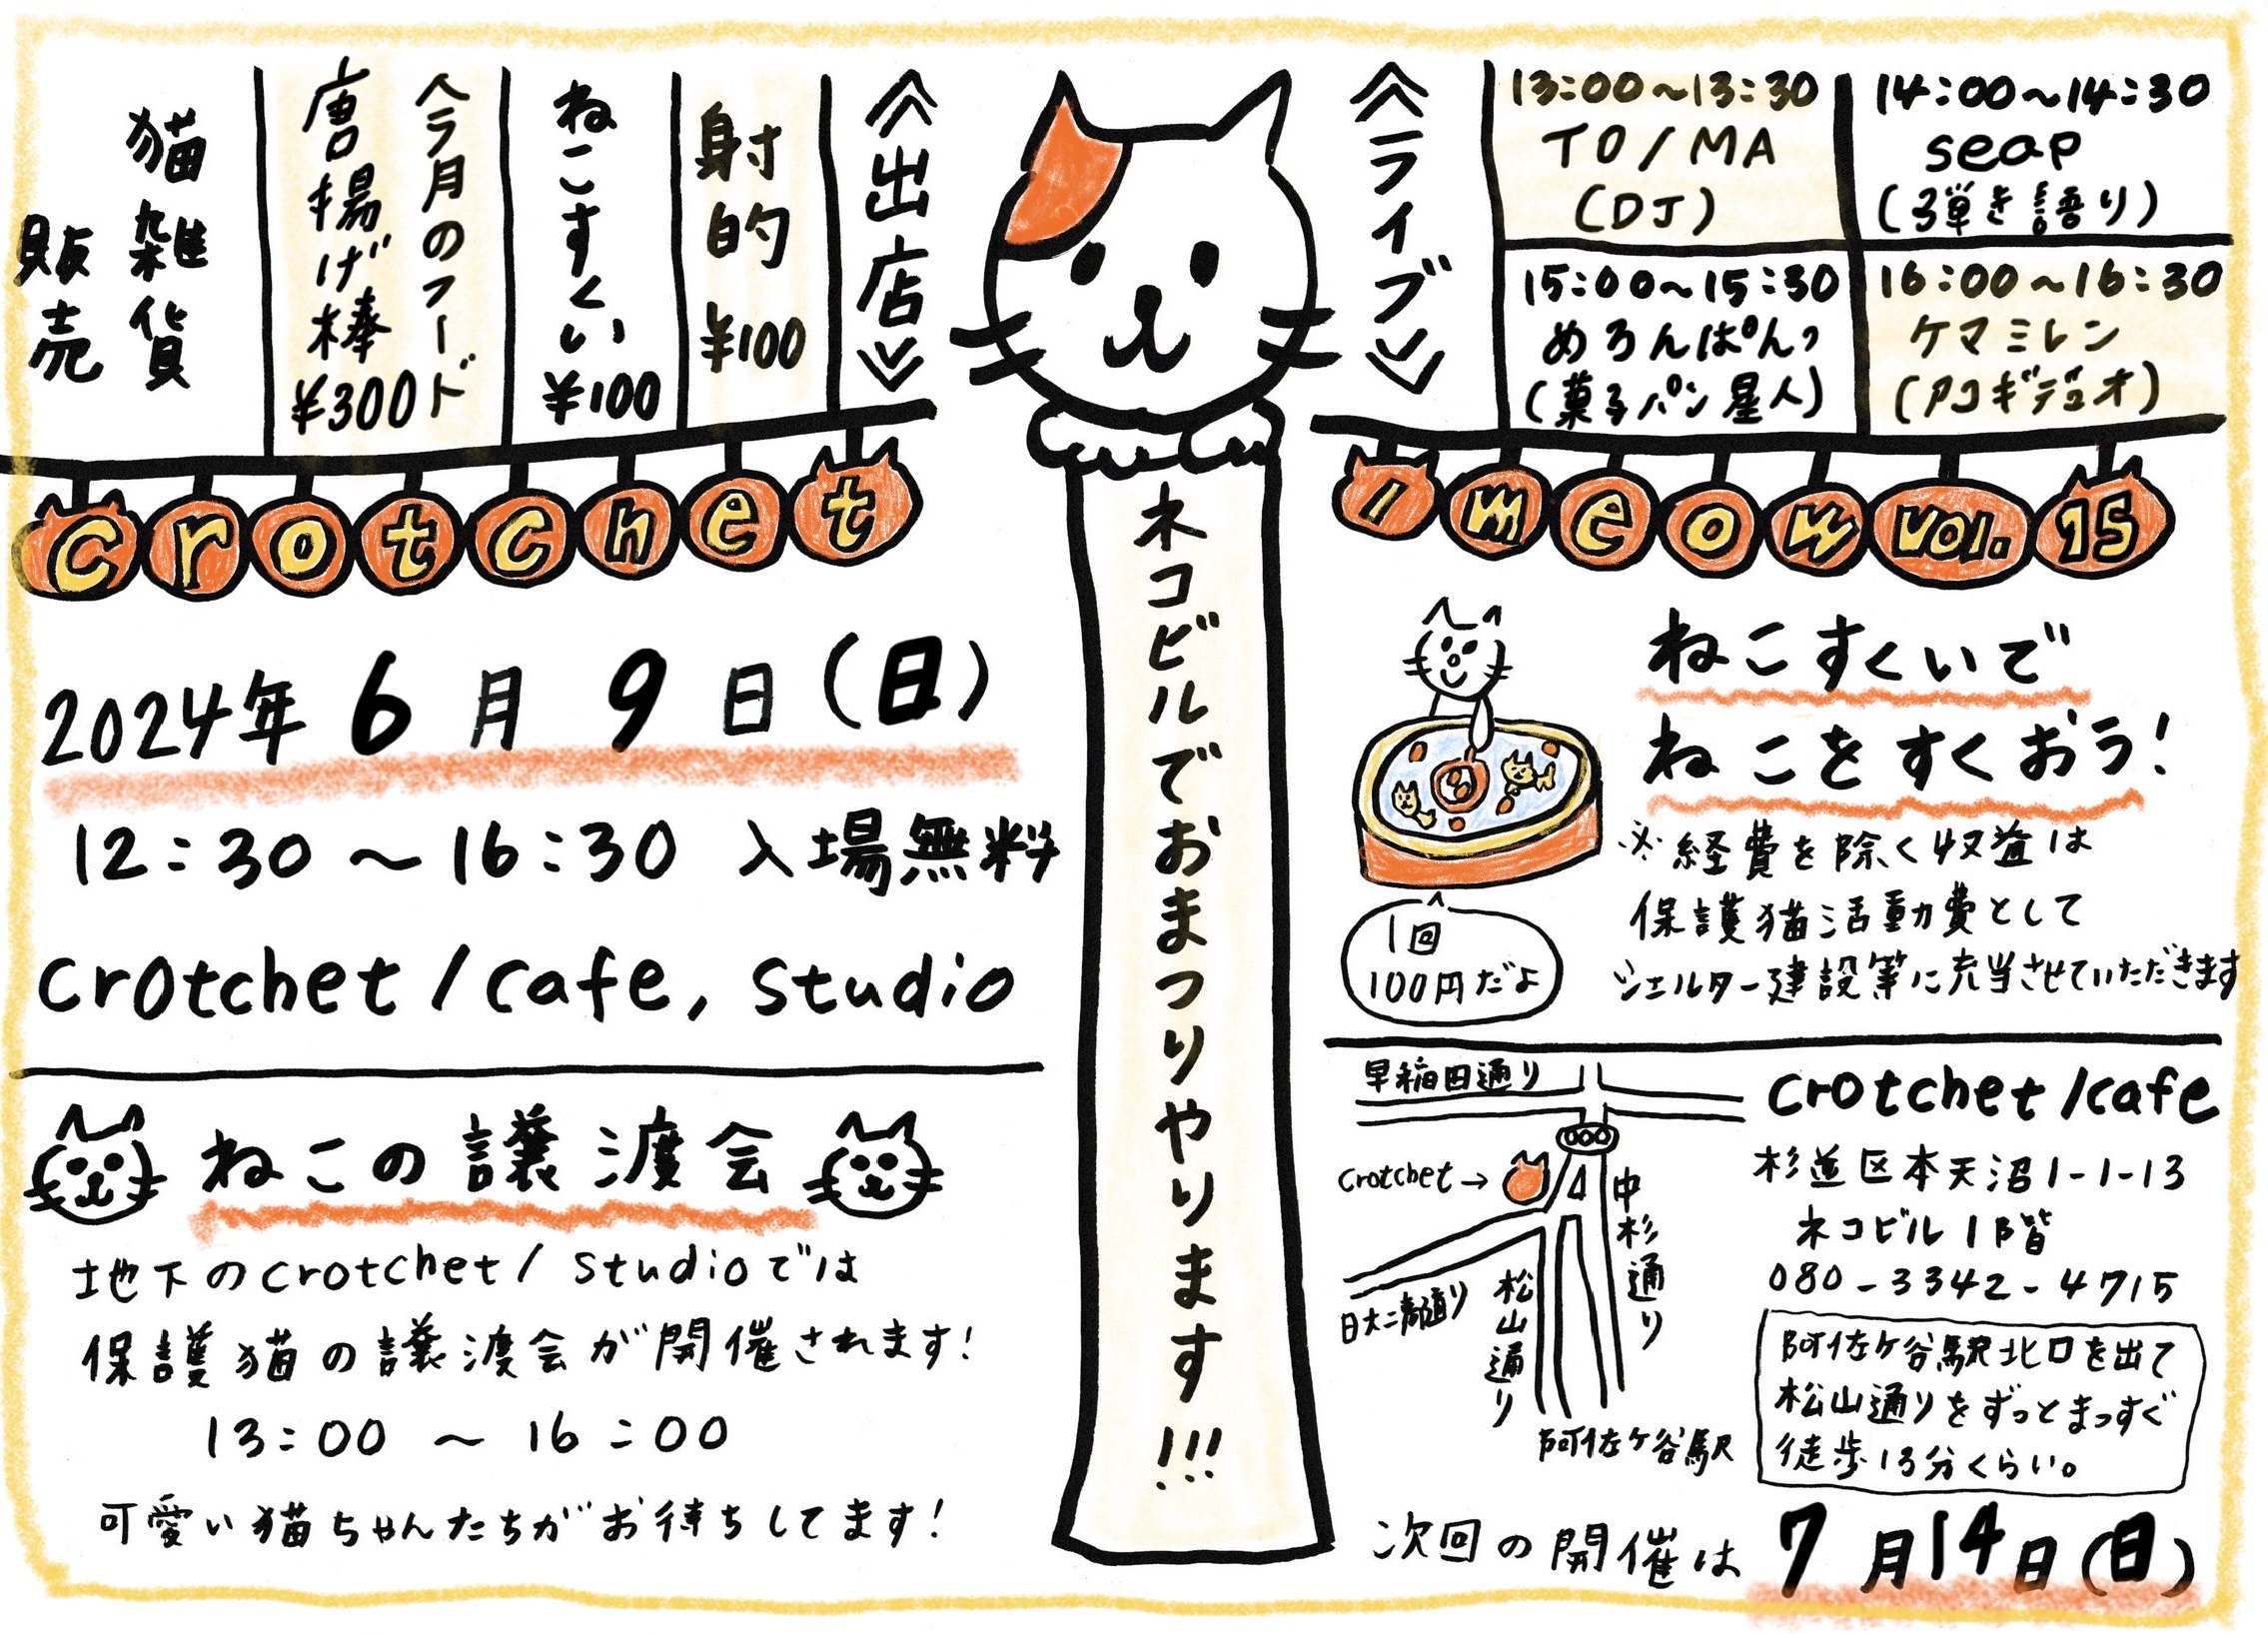 《出店》
射的 ¥100
ねこすくい ¥100
今月のフード
唐揚げ棒 ¥300
猫雑貨
販売
《ライブ》
13:00〜13:30
TO/MA
(DJ)
14:00〜14:30
seap
(弾き語り)
15:00〜15:30
めろんぱんっ
(菓子パン星人)
16:00〜16:30
ケマミレン
(アコギデュオ)
crotchet
/meow vol.15
ネコビルでおまつりやります!!!
2024年 6月 9日(日)
12:30〜16:30 入場無料
crotchet/cafe, studio
ねこの譲渡会
地下のcrotchet/studioでは
保護猫の譲渡会が開催されます!
13:00 〜 16:00
可愛い猫ちゃんたちがお待ちしてます!
ねこすくいで
ねこをすくおう!
※経費を除く収益は
保護猫活動費として
シェルター建設等に充当させていただきます
1回
100円だよ
早稲田通り
crotchet→
中杉通り
日大二高通り
松山通り
阿佐ヶ谷駅
crotchet/cafe
杉並区本天沼1-1-13
ネコビル1階
080-3342-4715
阿佐ヶ谷駅北口を出て
松山通りをずっとまっすぐ
徒歩13分くらい。
次回の開催は 7月14日(日)